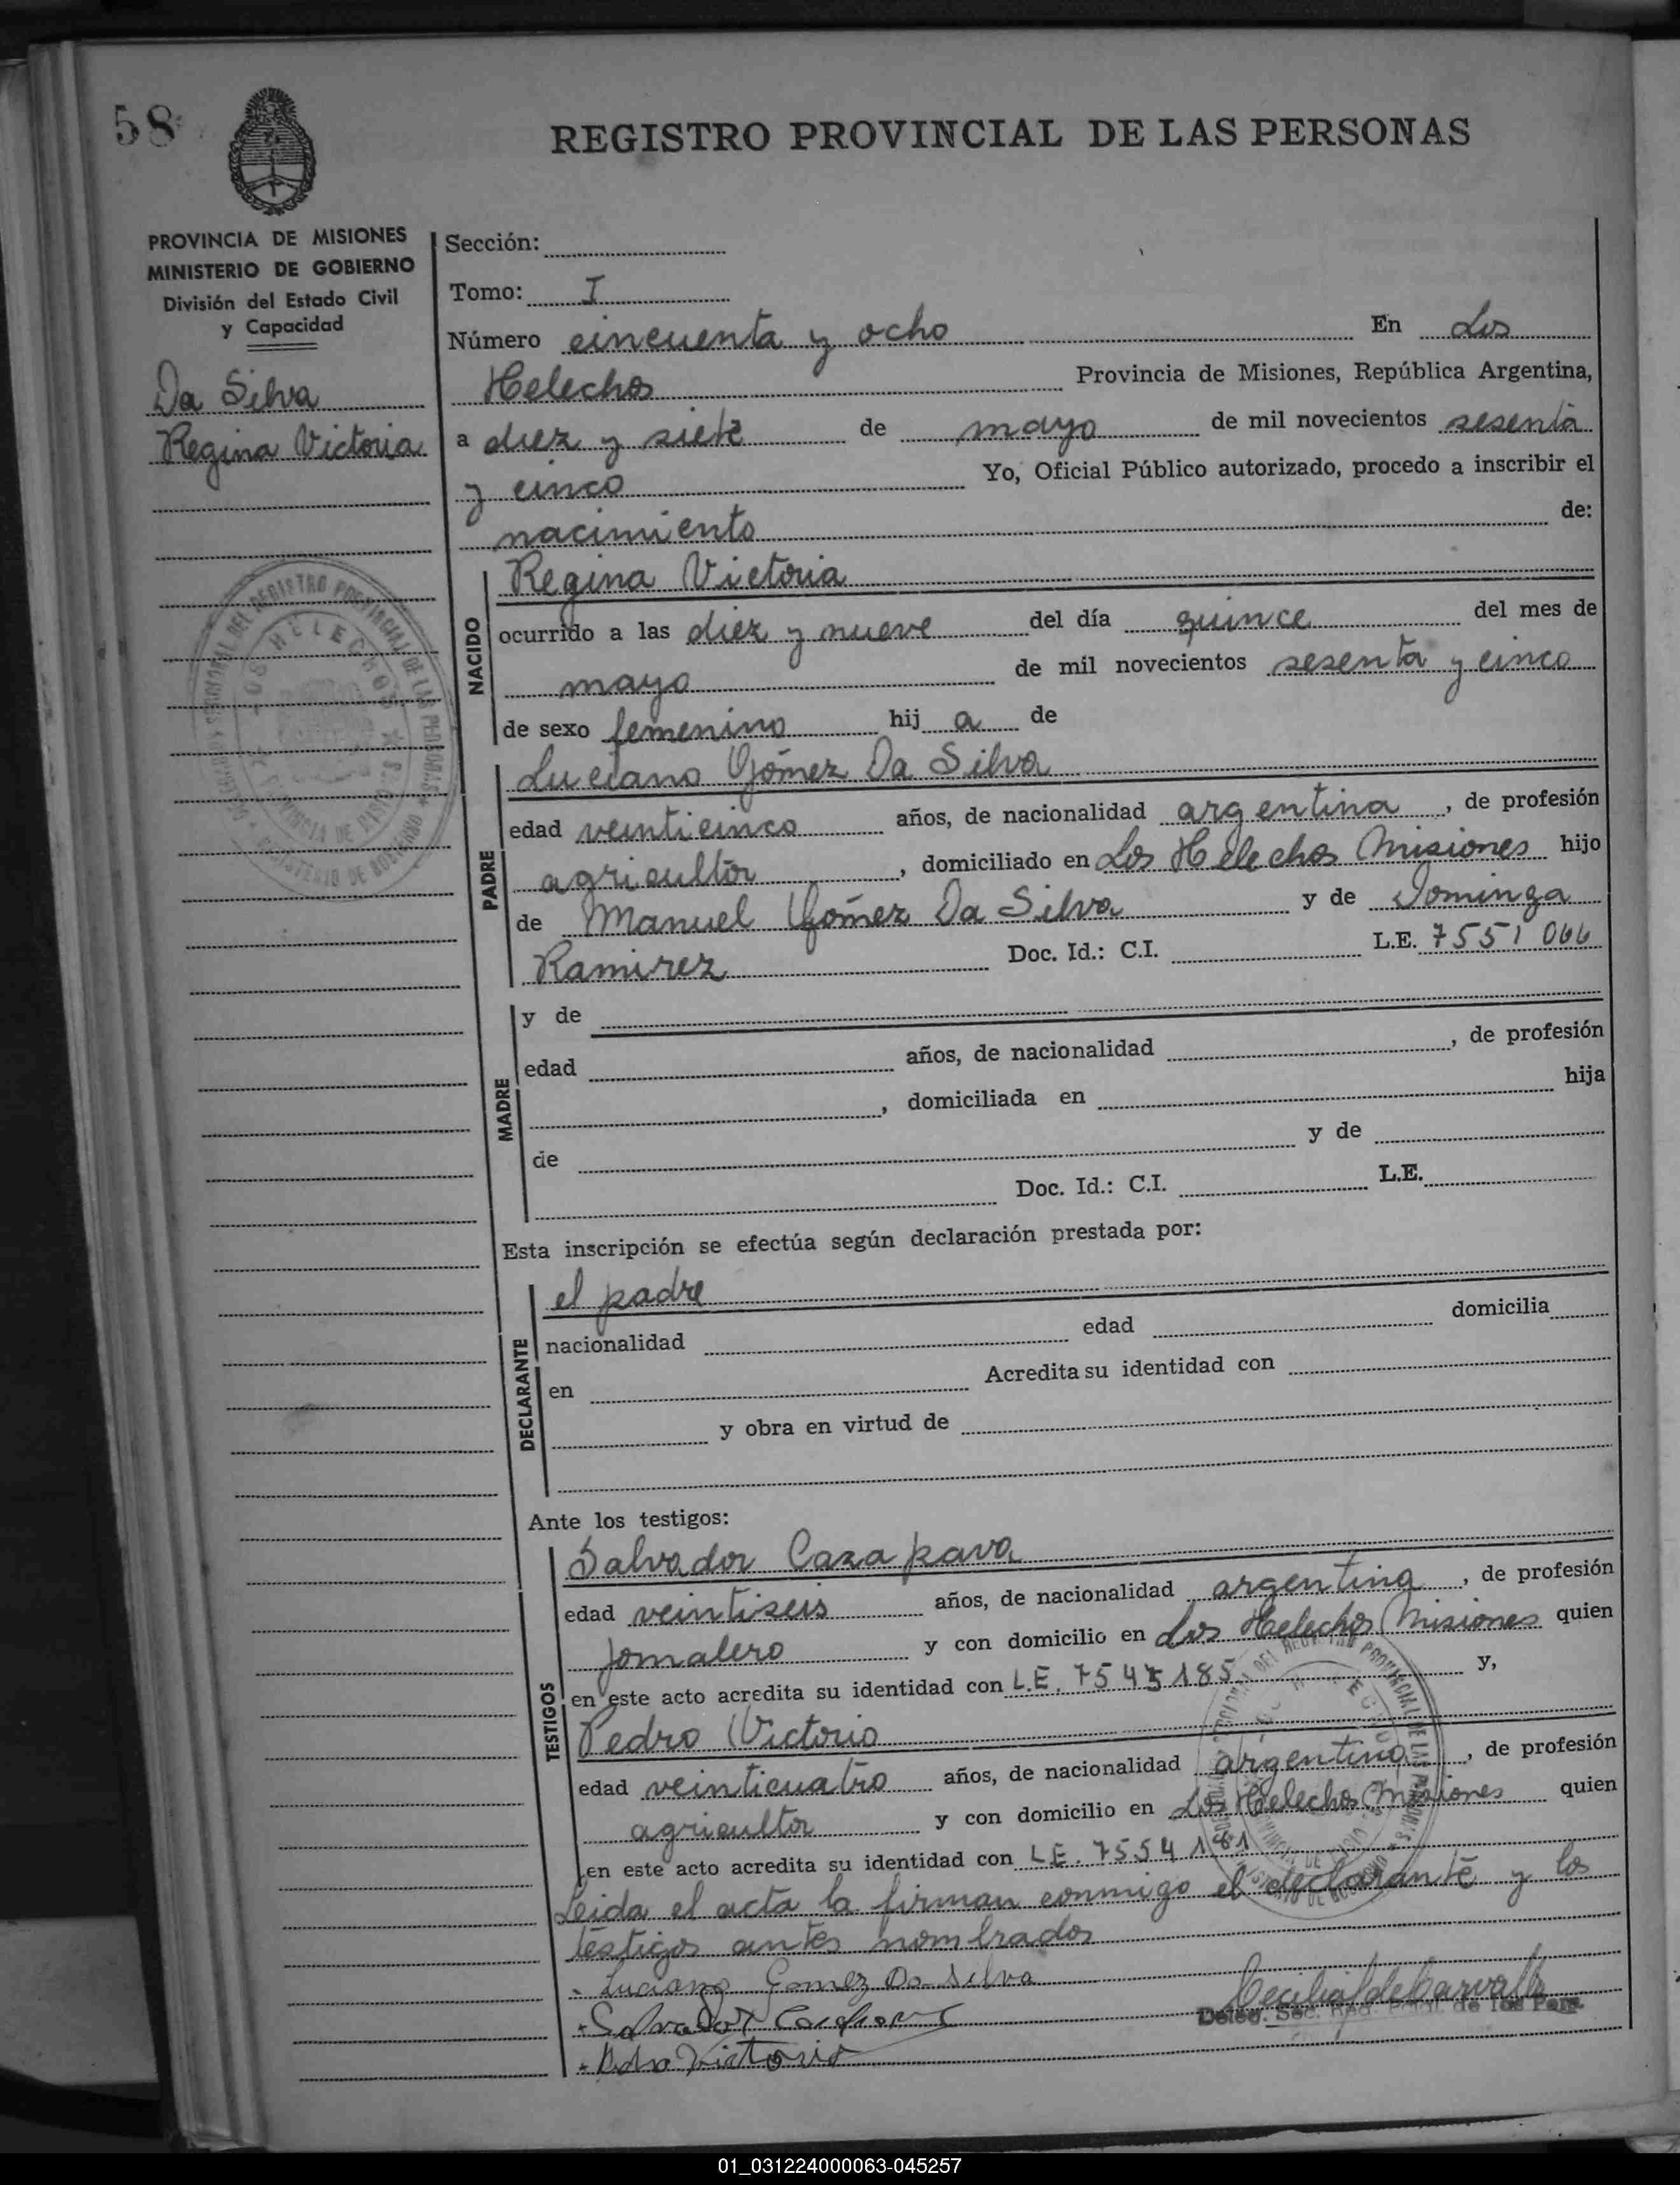 58
REGISTRO PROVINCIAL DE LAS PERSONAS
PROVINCIA DE MISIONES
MINISTERIO DE GOBIERNO
División del Estado Civil
y Capacidad
Da Silva
Regina Victoria
Sección:
Tomo: I
Número cincuenta y ocho En Los
Helechos Provincia de Misiones, República Argentina,
a diez y siete de mayo de mil novecientos sesenta
y cinco Yo, Oficial Público autorizado, procedo a inscribir el
nacimiento de:
NACIDO
Regina Victoria
ocurrido a las diez y nueve del día quince del mes de
mayo de mil novecientos sesenta y cinco
de sexo femenino hij a de
PADRE
Luciano Gómez Da Silva
edad veinticinco años, de nacionalidad argentina, de profesión
agricultor, domiciliado en Los Helechos Misiones hijo
de Manuel Gómez Da Silva y de Dominga
Ramirez Doc. Id.: C.I. L.E. 7551066
MADRE
y de
edad años, de nacionalidad , de profesión
, domiciliada en hija
de y de
Doc. Id.: C.I. L.E.
Esta inscripción se efectúa según declaración prestada por:
DECLARANTE
el padre
nacionalidad edad domicilia
en Acredita su identidad con
y obra en virtud de
Ante los testigos:
TESTIGOS
Salvador Cazapava
edad veintiseis años, de nacionalidad argentina, de profesión
jornalero y con domicilio en Los Helechos Misiones quien
en este acto acredita su identidad con L.E. 7545185 y,
Pedro Victorio
edad veinticuatro años, de nacionalidad argentina, de profesión
agricultor y con domicilio en Los Helechos Misiones quien
en este acto acredita su identidad con L.E. 7554181
Leida el acta la firman conmigo el declarante y los
testigos antes nombrados
Luciano Gomez Da Silva
Salvador
Pedro Victorio
Deleg. Sec. Reg. Pcial. de las Pers.
01_031224000063-045257